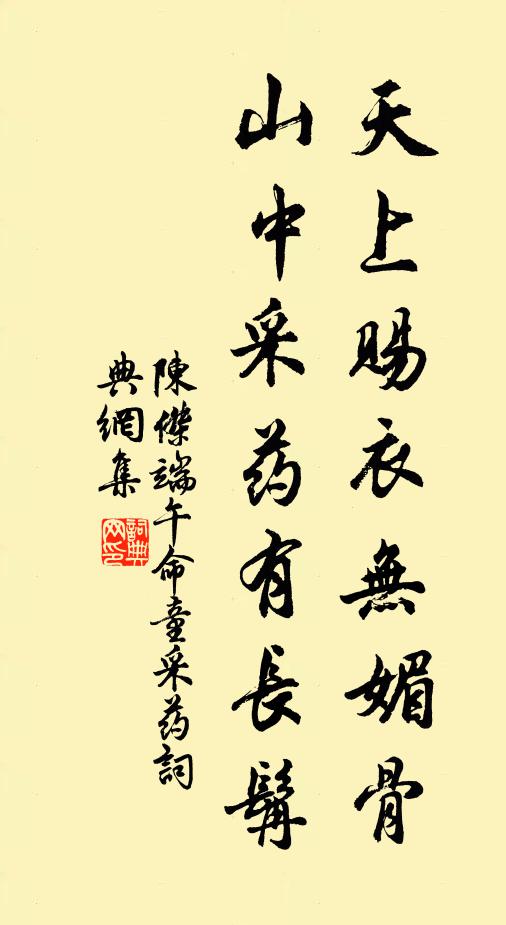 天上賜衣無媚骨
山中采药有長髯
陳傑端午命童采药詞
典網集
詞典網印